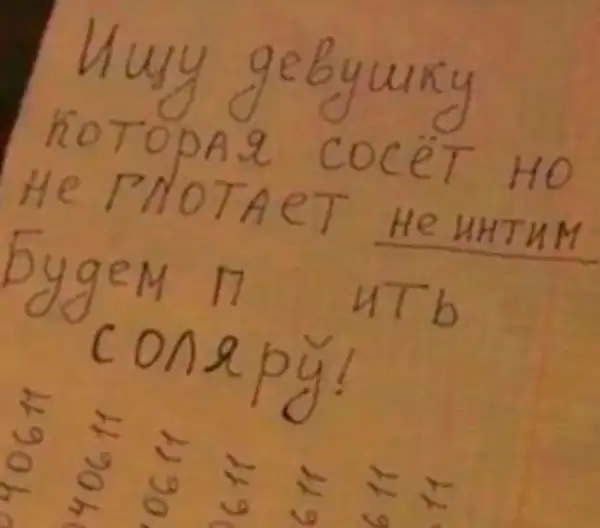 Ищу девушку
которая сосёт но
не глотает не интим
Будем п ить
соляру!
940611
940611
40611
0611
611
611
11